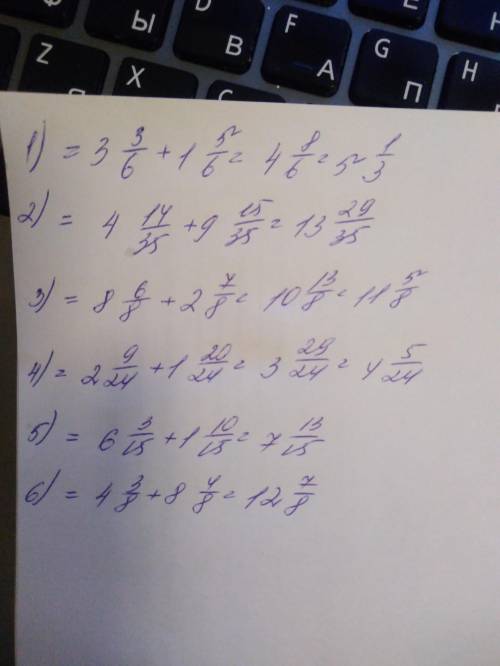 D Ы В F А Е G П Н Z Я X
1) = 3 3/6 + 1 5/6 = 4 8/6 = 5 1/3
2) = 4 14/35 + 9 15/35 = 13 29/35
3) = 8 6/8 + 2 7/8 = 10 13/8 = 11 5/8
4) = 2 9/24 + 1 20/24 = 3 29/24 = 4 5/24
5) = 6 3/15 + 1 10/15 = 7 13/15
6) = 4 3/8 + 8 4/8 = 12 7/8